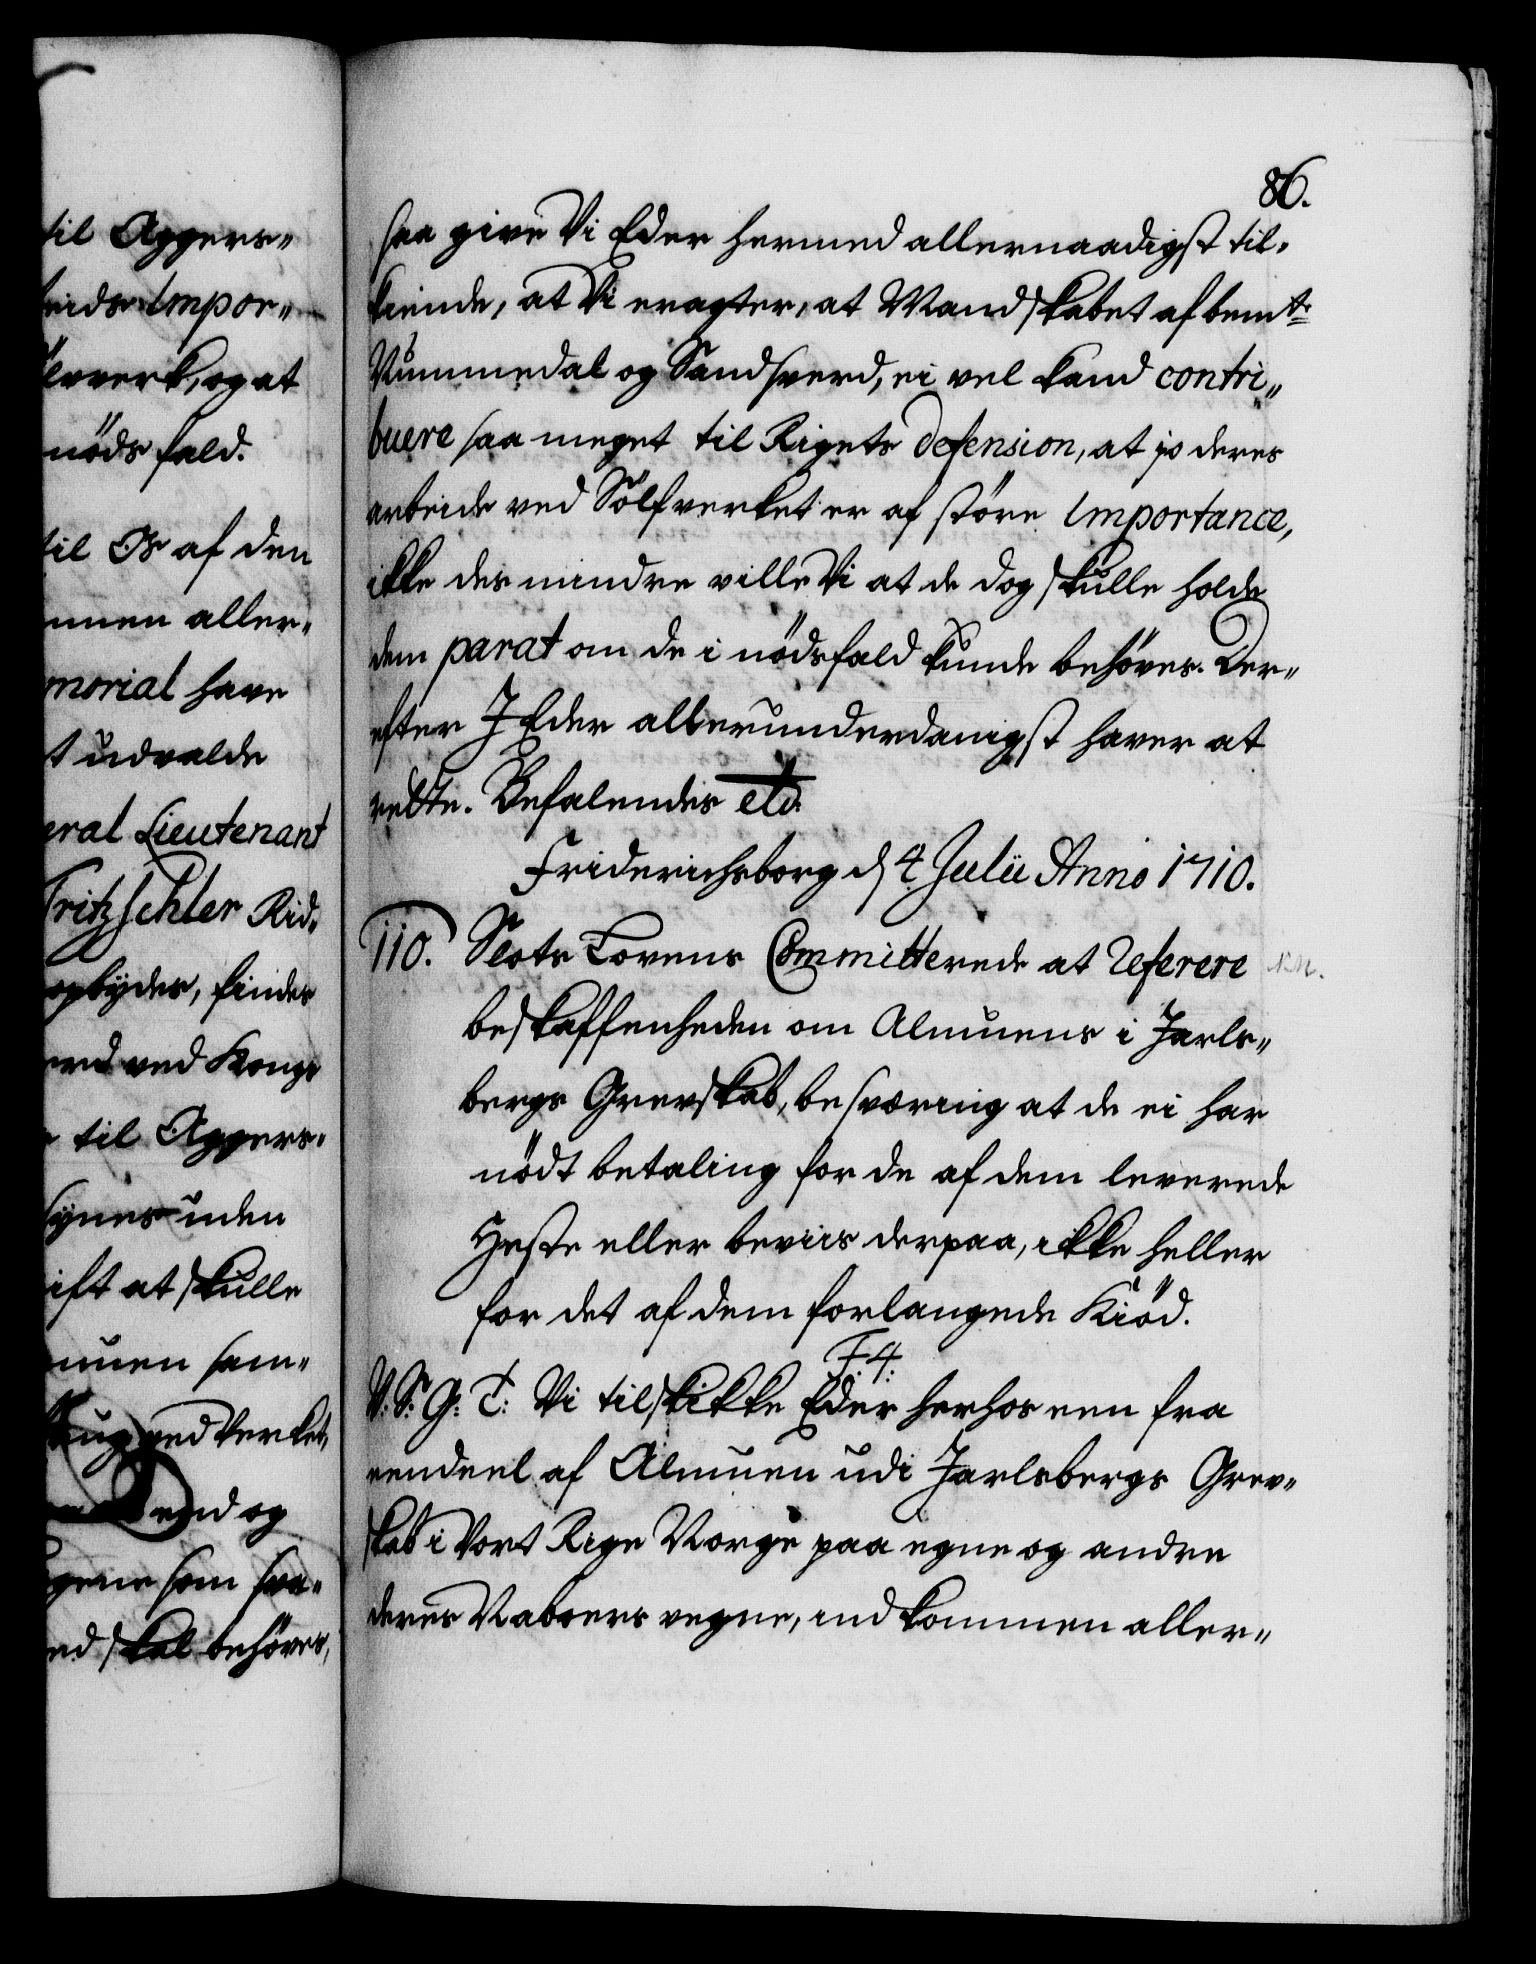 til Aggers„
beids Impor„
lverk, og at
nöds fald.
til Os af den
nuen aller„
morial have
t udvalde
eral Lieutenant
Fritzschler Rid„
opbydes, findes
ved Kongs
til Aggers„
synes uden
ift at skulle
nuen sam„
ved Verket,
end og
gene som saa„
ed skal behöves,
86.
saa give Vi Eder hermed allernaadigst til„
kiende, at Vi eragter, at Mandskabet af bemte
Nummedal og Sandsverd, ei vel kand contri„
buere saa meget til Rigets defension, at jo deres
arbeide ved Sölfverket er af störe Importance,
ikke des mindre ville Vi at de dog skulle holde
dem parat om de i nödsfald kunde behöves. Der„
efter I Eder allerunderdanigst haver at
rette. Befalendes etc.
Friderichsborg d 4 Julii Anno 1710.
110. Slots Lovens Committerede at Referere
beskaffenheden om Almuens i Jarls„
bergs Grevskab, besværing at de ei har
nödt betaling for de af dem leverede
Heste eller beviis derpaa, ikke heller
for det af dem forlangede Kiöd.
F. 4.
V. S. G: T: Vi tilskikke Eder herhos een fra
eendeel af Almuen udi Jarlsbergs Grev„
skab i Vort Rige Norge paa egne og andre
deres Naboers vegne, indkommen aller„